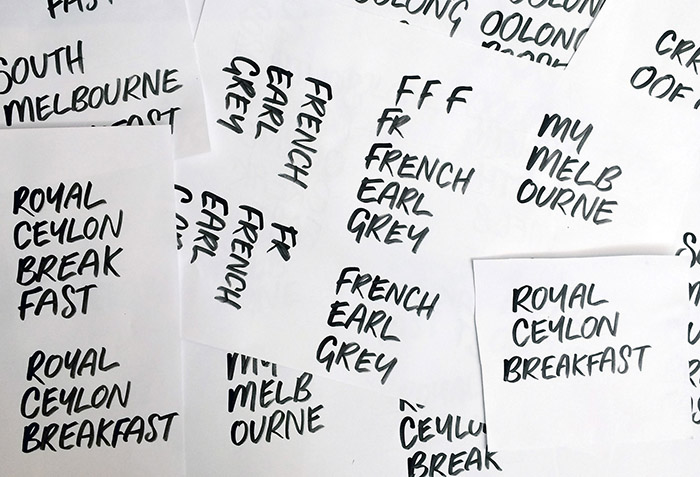 FAST
SOUTH
MELBOURNE
FAST
ROYAL
CEYLON
BREAK
FAST
ROYAL
CEYLON
BREAKFAST
FRENCH
EARL
GREY
FR
FRENCH
EARL
OOLONG
OOLONG
F F F
FR
FRENCH
EARL
GREY
FRENCH
EARL
GREY
MY
MELB
OURNE
CEYLO
BREAK
MY
MELB
OURNE
CRR
OOF
ROYAL
CEYLON
BREAKFAST